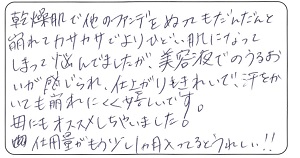 乾燥肌で他のファンデをぬってもだんだんと
崩れてカサカサでよりひどい肌になって
しまって悩んでましたが、美容液でのうるお
いが感じられ、仕上がりもきれいで、汗をか
いても崩れにくく嬉しいです。
母にもオススメしちゃいました。
内容量がもう少し1ヵ月入ってるとうれしい!!